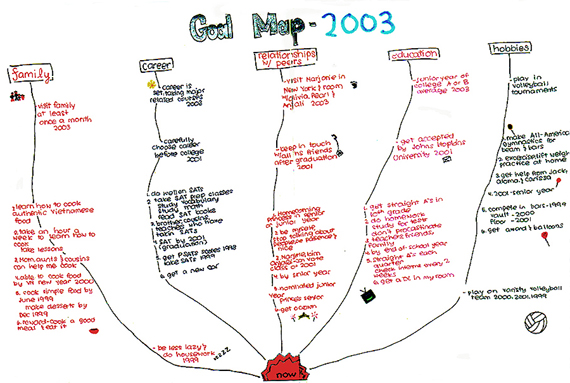 Goal Map - 2003
family
career
relationships
w/ peers
education
hobbies
visit family
at least
once a month
2003
career is
set, taking major
related courses
2003
visit Marjorie in
New York & room
Anjali 2003
junior year of
college A or B
average 2003
play in
volleyball
tournaments
carefully
choose career
before college
2001
keep in touch
w/ all hs friends
after graduation
2001
get accepted
by Johns Hopkins
University 2001
make All-America
gymnastics for
beam &
practice at home
3. get help from Jack
2001-senior year
5. compete in bars-1999
vault-2000
floor-2001
6. get award & balloons
learn how to cook
authentic Vietnamese
food
2. take an hour a
week to learn how to
cook
take lessons
3. Mom, aunts & cousins
can help me cook
4. able to cook food
by VN new year 2000
5. cook simple food by
June 1999
make desserts by
Dec 1999
6. reward-cook a good
meal & eat it
do well on SATs
2. take SAT prep classes
study vocabulary
study math
read SAT books
3. brother, cousins,
teachers who home
SATs
4. SAT by 2001
(graduation)
5. get PSATs scores 1998
take SATs 1999
6. get a new car
homecoming
princess in senior
or junior year
2. be myself
stop talking about
class of 2001
4. by senior year
5. nominated junior
year
senior
get straight A's in
10th grade
2. do homework
study for tests
don't procrastinate
3. teachers, friends,
family
4. by end of school year
5. straight A's each
quarter
check interims every 2
weeks
6. get a DSL in my room
play on varsity volleyball
team 2000, 2001, 1999
be less lazy &
do housework
1999
zzzz
now